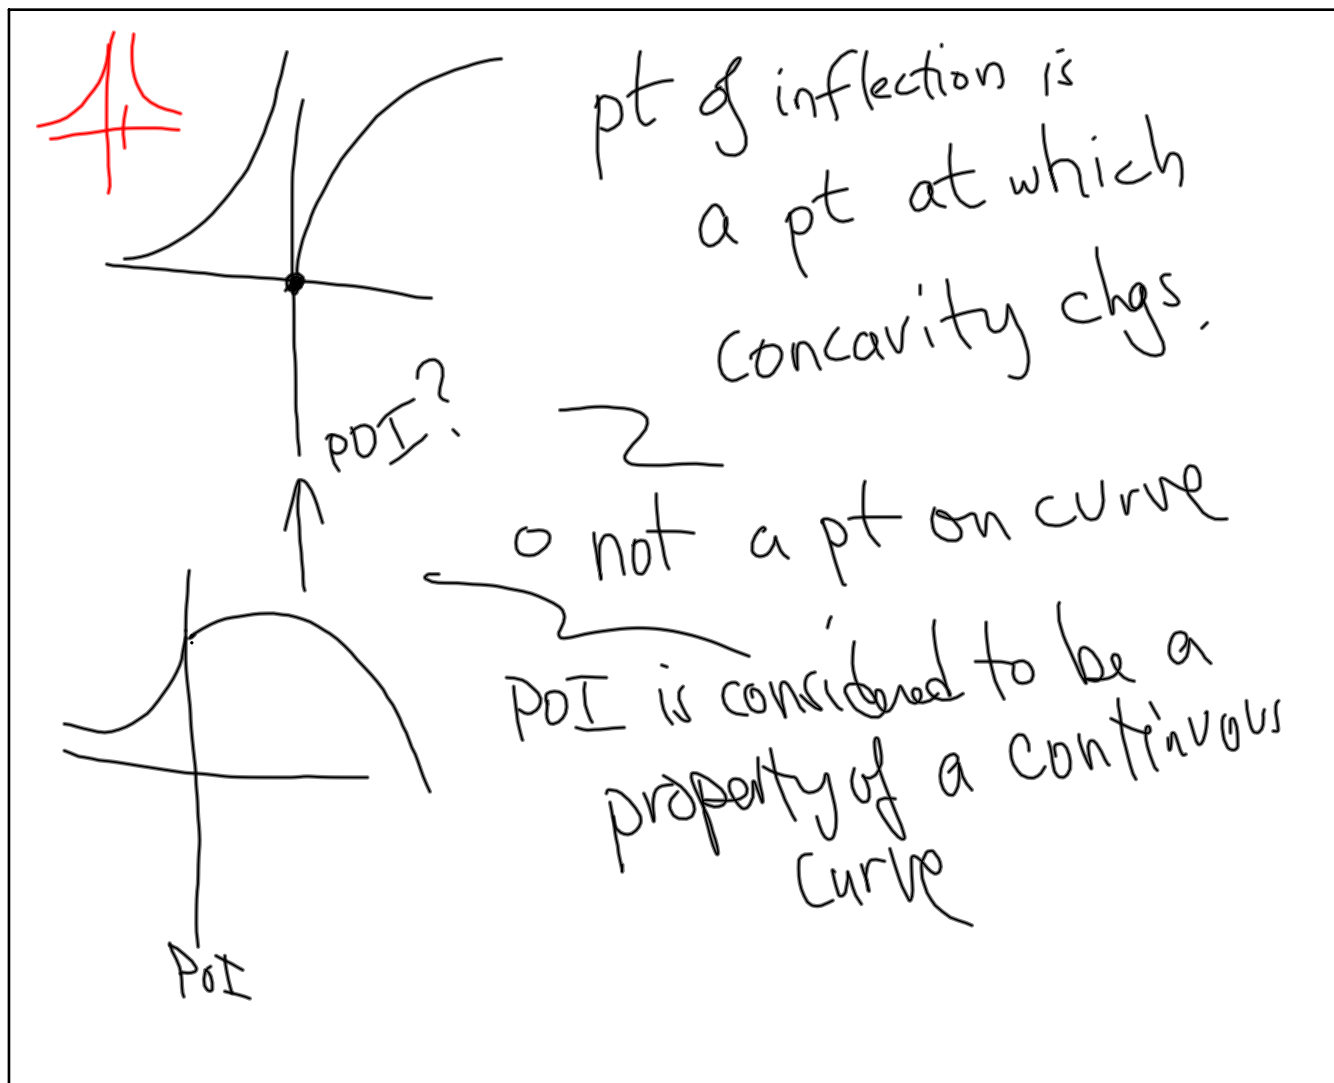 pt of inflection is
a pt at which
concavity chgs.
POI?
o not a pt on curve
POI is considered to be a
property of a continuous
curve
POI